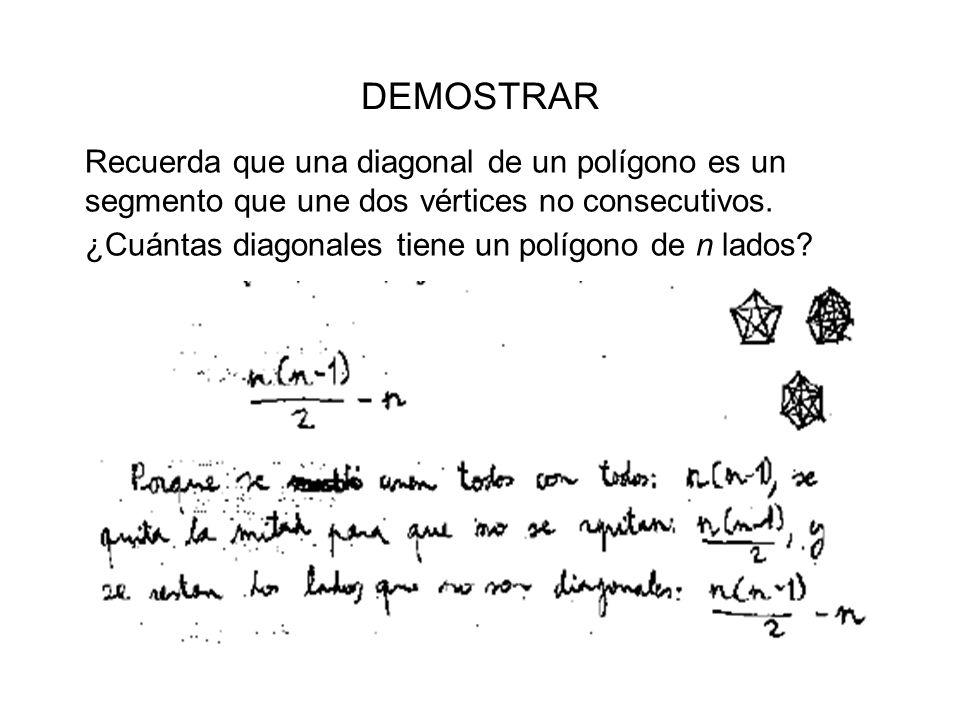 DEMOSTRAR
Recuerda que una diagonal de un polígono es un
segmento que une dos vértices no consecutivos.
¿Cuántas diagonales tiene un polígono de n lados?
n(n-1)/2 - n
Porque se unen todos con todos: n(n-1), se
quita la mitad para que no se repitan: n(n-1)/2, y
se restan los lados que no son diagonales: n(n-1)/2 - n